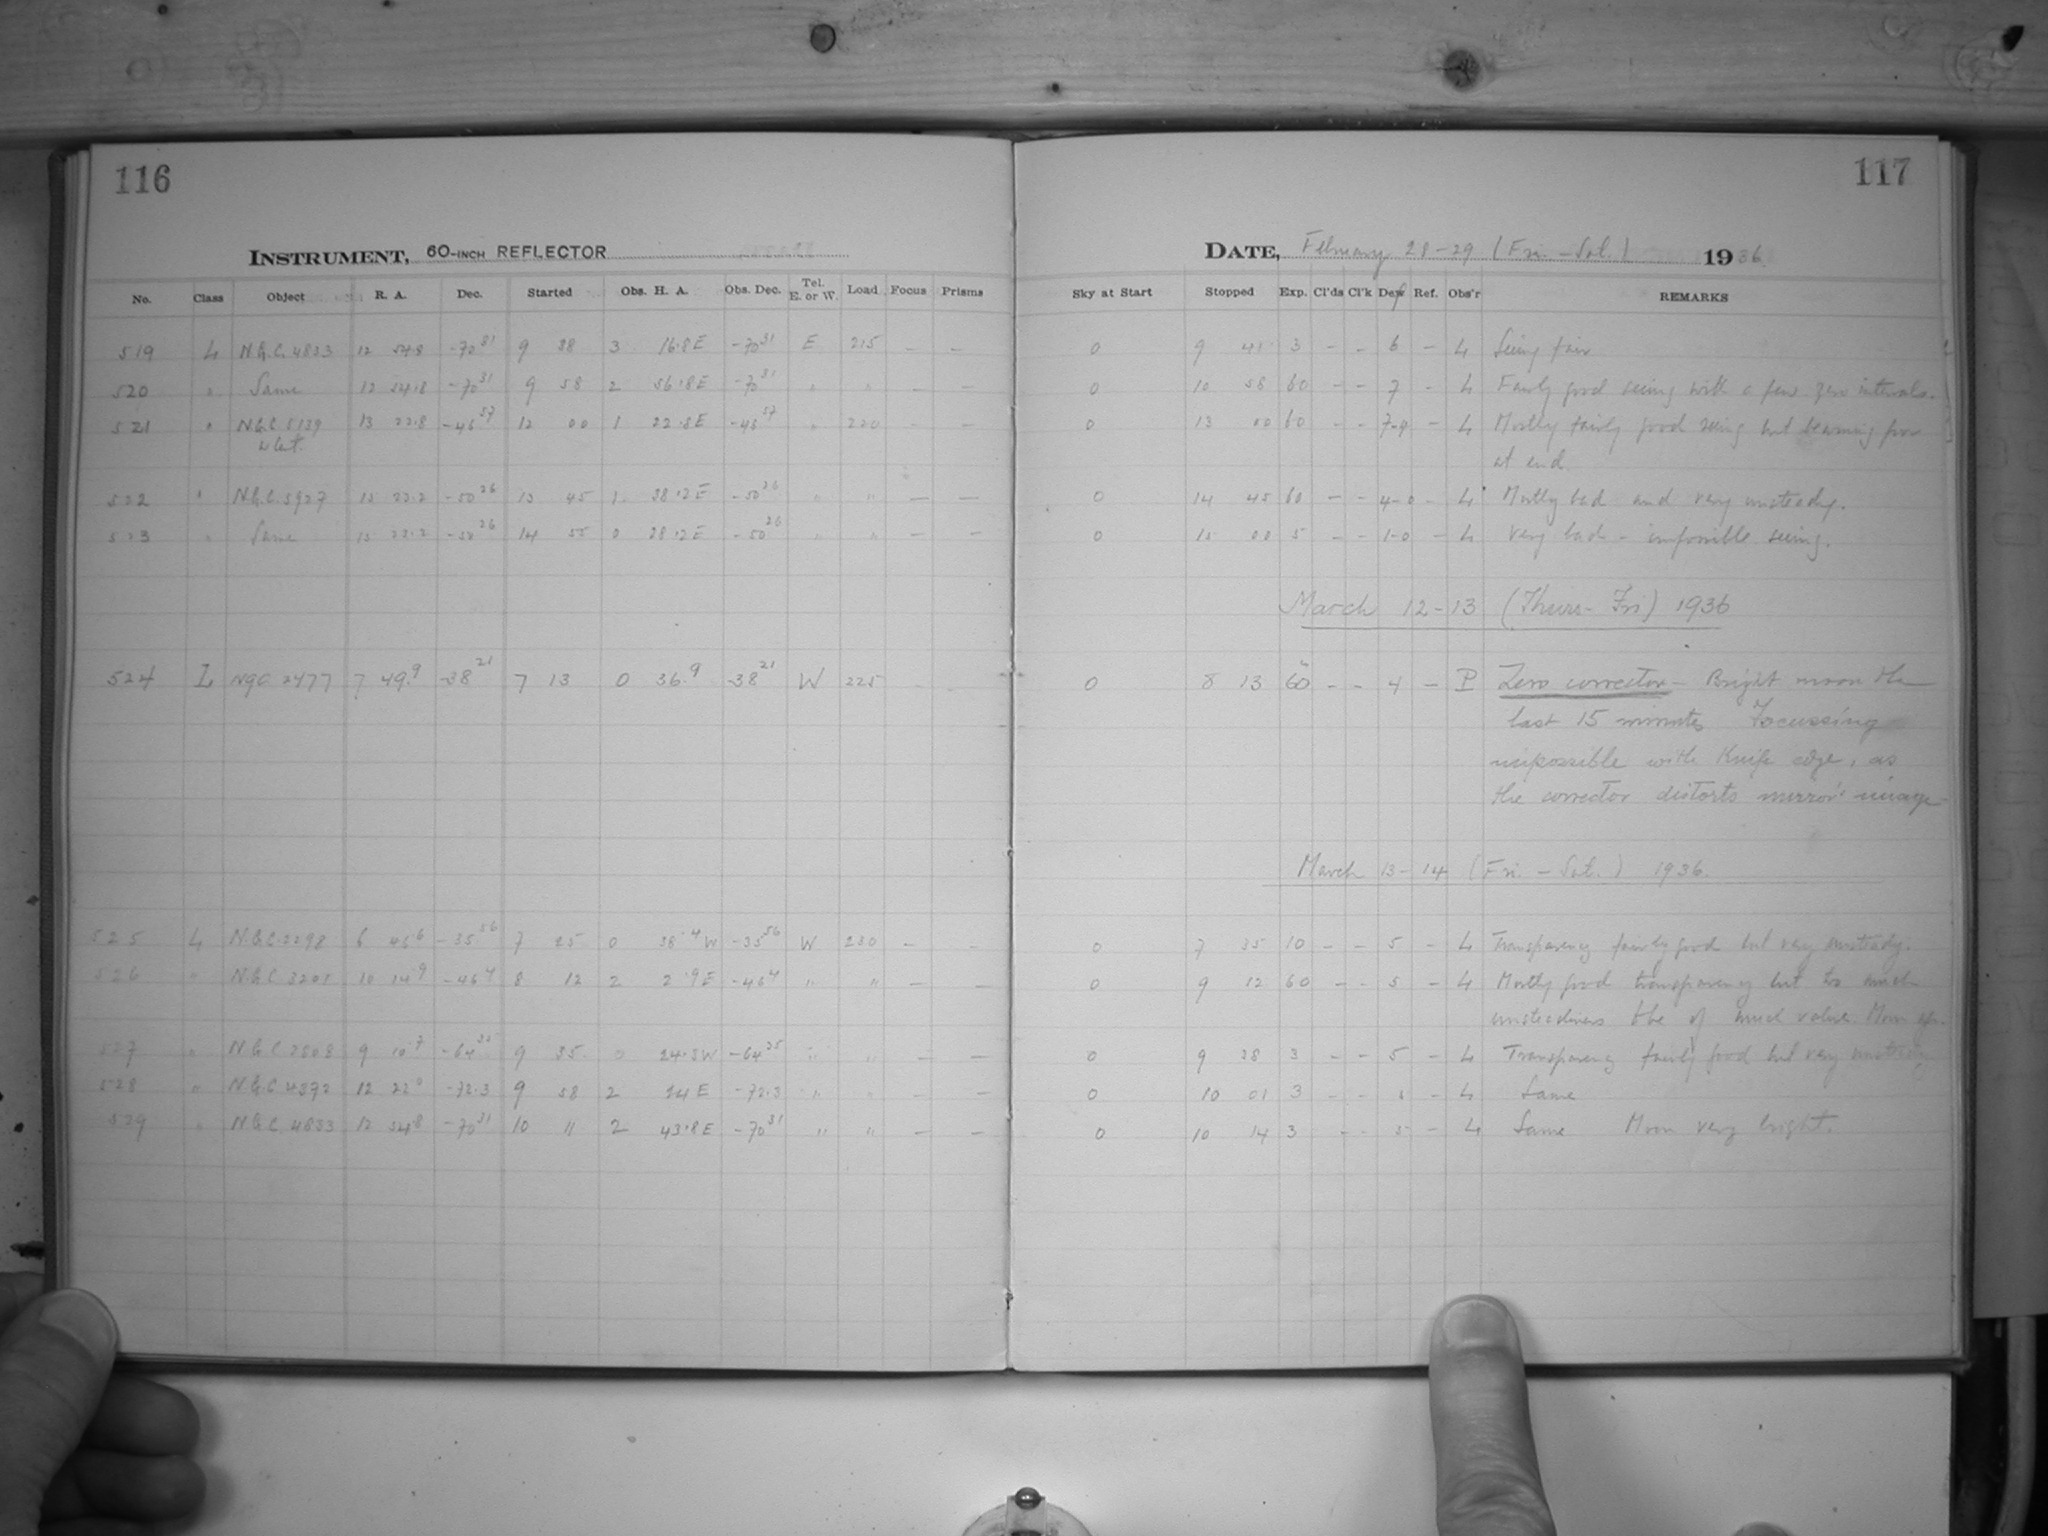 116
INSTRUMENT, 60-INCH REFLECTOR
No. Class Object R. A. Dec. Started Obs. H. A. Obs. Dec. Tel. E. or W. Load Focus Prisms
519 L N.G.C. 4833 12 54.8 -70 31 9 38 3 16.8 E -70 31 E 215 — —
520 " Same 12 54.8 -70 31 9 58 2 56.8 E -70 31 " " — —
521 " N.G.C. 5139 13 22.8 -46 57 12 00 1 22.8 E -46 57 " 220 — —
ω Cent.
522 " N.G.C. 5927 15 22.2 -50 26 13 45 1 38.2 E -50 26 " " — —
523 " Same 15 22.2 -50 26 14 55 0 28.2 E -50 26 " " — —
524 L NGC 2477 7 49.9 -38 21 7 13 0 36.9 -38 21 W 225
525 L N.G.C. 2298 6 45.6 -35 56 7 25 0 38.4 W -35 56 W 230 — —
526 " N.G.C. 3201 10 14.9 -46 4 8 12 2 2.9 E -46 4 " " — —
527 " N.G.C. 2808 9 10.7 -64 35 9 35 0 24.3 W -64 35 " " — —
528 " N.G.C. 4372 12 22.0 -72.3 9 58 2 24 E -72.3 " " — —
529 " N.G.C. 4833 12 54.8 -70 31 10 11 2 43.8 E -70 31 " " — —
117
DATE, February 28-29 (Fri. - Sat.) 1936
Sky at Start Stopped Exp. Cl'ds Cl'k Dew Ref. Obs'r REMARKS
0 9 41 3 - - 6 - L Seeing fair
0 10 58 60 - - 7 - L Fairly good seeing with a few zero intervals.
0 13 00 60 - - - L Mostly fairly good seeing but becoming poor
at end.
0 14 45 60 - - 4-0 - L Mostly bad and very unsteady.
0 15 00 5 - - 1-0 - L Very bad - impossible seeing.
March 12-13 (Thurs-Fri) 1936
0 8 13 60 - - 4 - P Zero corrector - Bright moon the
last 15 minutes Focussing
impossible with Knife edge, as
the corrector distorts mirror's image
March 13-14 (Fri. - Sat.) 1936.
0 7 35 10 - - 5 - L Transparency fairly good but very unsteady.
0 9 12 60 - - 5 - L Mostly good transparency but too much
unsteadiness to be of much value. Moon up.
0 9 38 3 - - 5 - L Transparency fairly good but very unsteady
0 10 01 3 - - 5 - L Same
0 10 14 3 - - 5 - L Same Moon very bright.